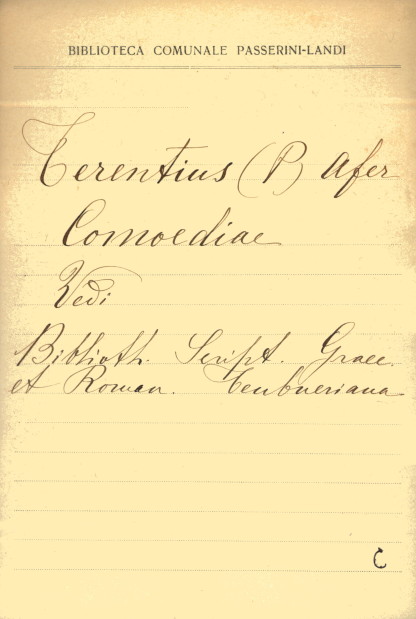 BIBLIOTECA COMUNALE PASSERINI-LANDI
Terentius (P) Afer
Comoediae
Vedi
Biblioth. Script. Graec.
et Roman. Teubneriana
C